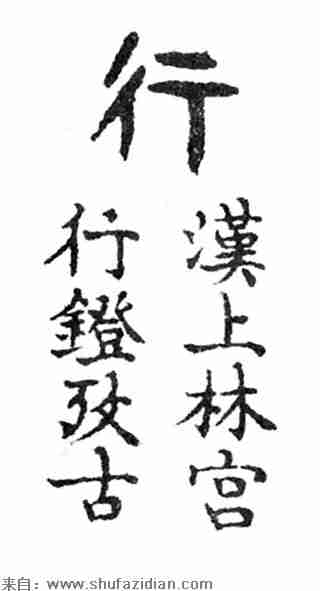 行
漢上林宮
行鐙攷古
来自：www.shufazidian.com